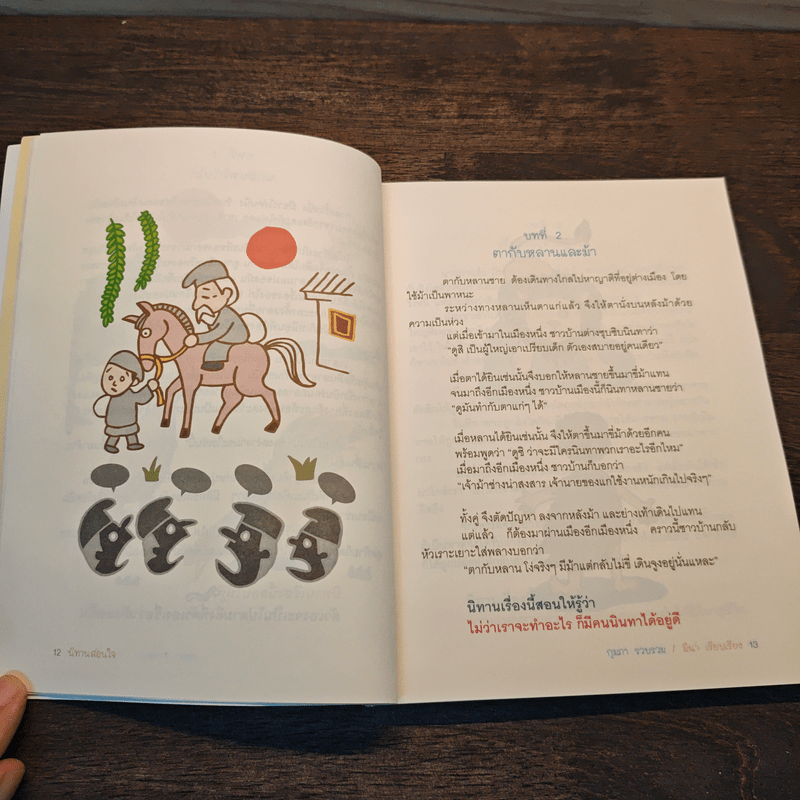 12 นิทานสอนใจ
บทที่ 2
ตากับหลานและม้า
ตากับหลานชาย ต้องเดินทางไกลไปหาญาติที่อยู่ต่างเมือง โดย
ใช้ม้าเป็นพาหนะ
ระหว่างทางหลานเห็นตาแก่แล้ว จึงให้ตานั่งบนหลังม้าด้วย
ความเป็นห่วง
แต่เมื่อเข้ามาในเมืองหนึ่ง ชาวบ้านต่างซุบซิบนินทาว่า
"ดูสิ เป็นผู้ใหญ่เอาเปรียบเด็ก ตัวเองสบายอยู่คนเดียว"
เมื่อตาได้ยินเช่นนั้นจึงบอกให้หลานชายขึ้นมาขี่ม้าแทน
จนมาถึงอีกเมืองหนึ่ง ชาวบ้านเมืองนี้ก็นินทาหลานชายว่า
"ดูมันทำกับตาแก่ๆ ได้"
เมื่อหลานได้ยินเช่นนั้น จึงให้ตาขึ้นมาขี่ม้าด้วยอีกคน
พร้อมพูดว่า "ดูซิ ว่าจะมีใครนินทาพวกเราอะไรอีกไหม"
เมื่อมาถึงอีกเมืองหนึ่ง ชาวบ้านก็บอกว่า
"เจ้าม้าช่างน่าสงสาร เจ้านายของแกใช้งานหนักเกินไปจริงๆ"
ทั้งคู่ จึงตัดปัญหา ลงจากหลังม้า และย่างเท้าเดินไปแทน
แต่แล้ว ก็ต้องมาผ่านเมืองอีกเมืองหนึ่ง คราวนี้ชาวบ้านกลับ
หัวเราะเยาะใส่พลางบอกว่า
"ตากับหลาน โง่จริงๆ มีม้าแต่กลับไม่ขี่ เดินจูงอยู่นั่นแหละ"
นิทานเรื่องนี้สอนให้รู้ว่า
ไม่ว่าเราจะทำอะไร ก็มีคนนินทาได้อยู่ดี
กุมภา รวบรวม / มีนา เรียบเรียง 13